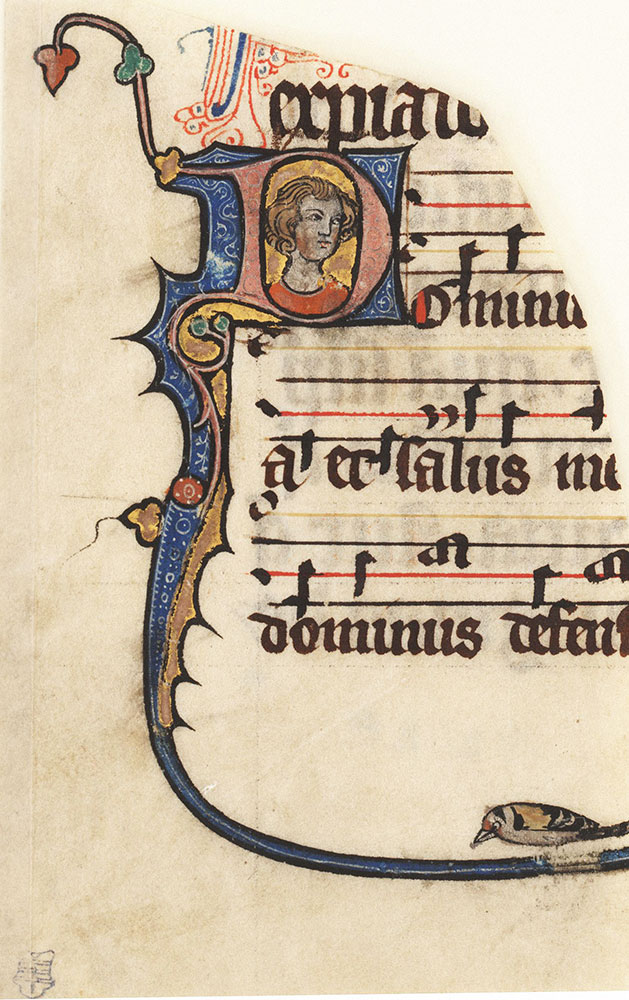 expiato
Dominu
a et salus me
dominus defens